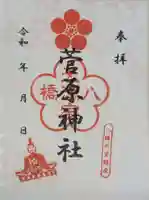 奉拝
菅原神社
八橋
令和 年 月 日